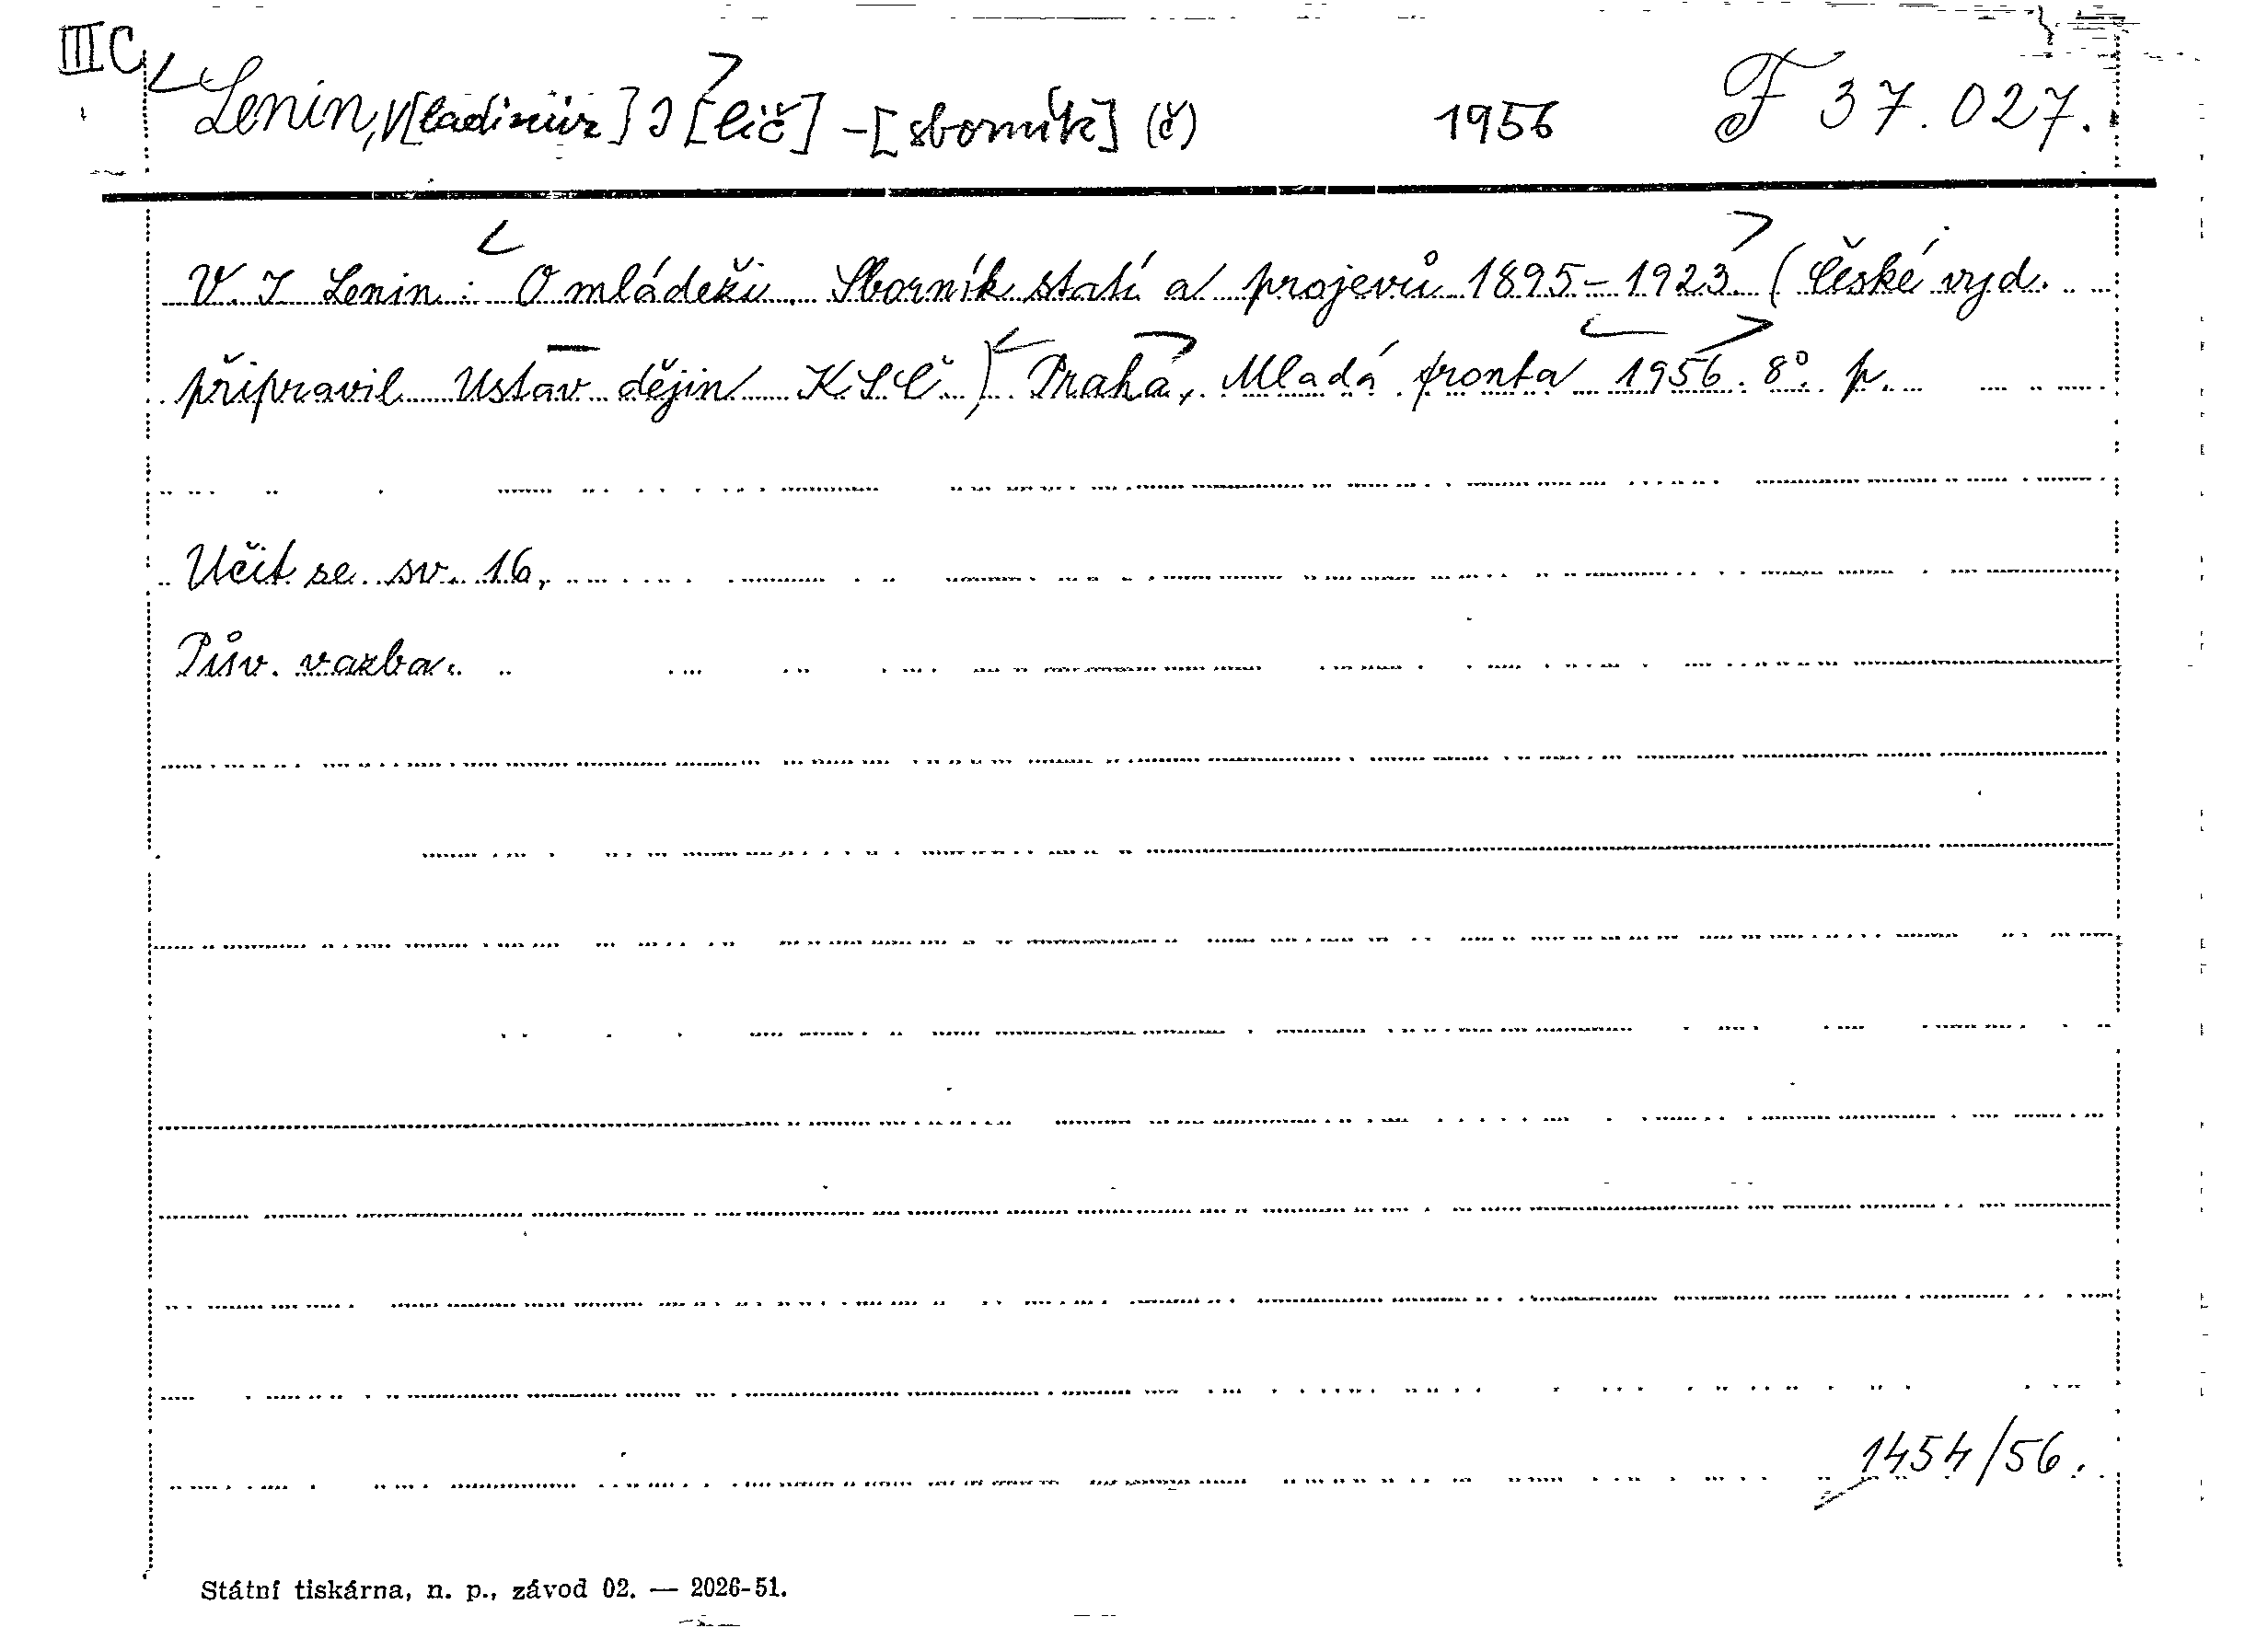 III C
Lenin, V[ladimir] I[lič] - [sborník] (č) 1956 F 37.027.
V. I Lenin: O mládeži. Sborník statí a projevů 1895-1923. (České vyd.
připravil Ústav dějin KSČ.) Praha, Mladá fronta 1956. 8°. p.
Učit se. sv. 16,
Pův. vazba.
1454/56.
Státní tiskárna, n. p., závod 02. — 2026-51.